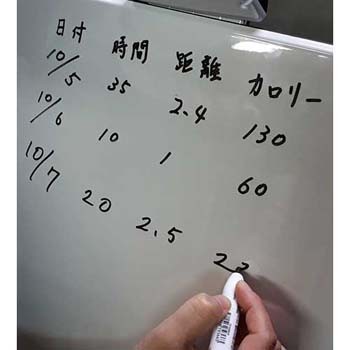 日付 時間 距離 カロリー
10/5 35 2.4 130
10/6 10 1 60
10/7 20 2.5 22